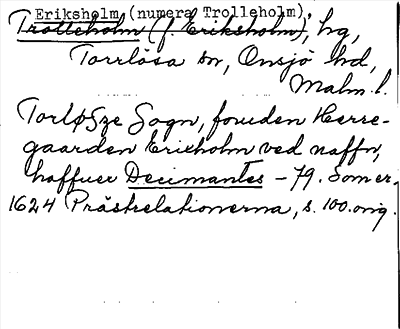 Eriksholm (numera Trolleholm),
Trolleholm (f Eriksholm), hg,
Torrlösa sn, Onsjö hd,
Malm. l.
Torløsze Sogn, foruden Herre-
gaarden Erixholm ved naffn,
haffuer Decimantes - 79. Som er.
1624 Prästrelationerna, s. 100. orig.